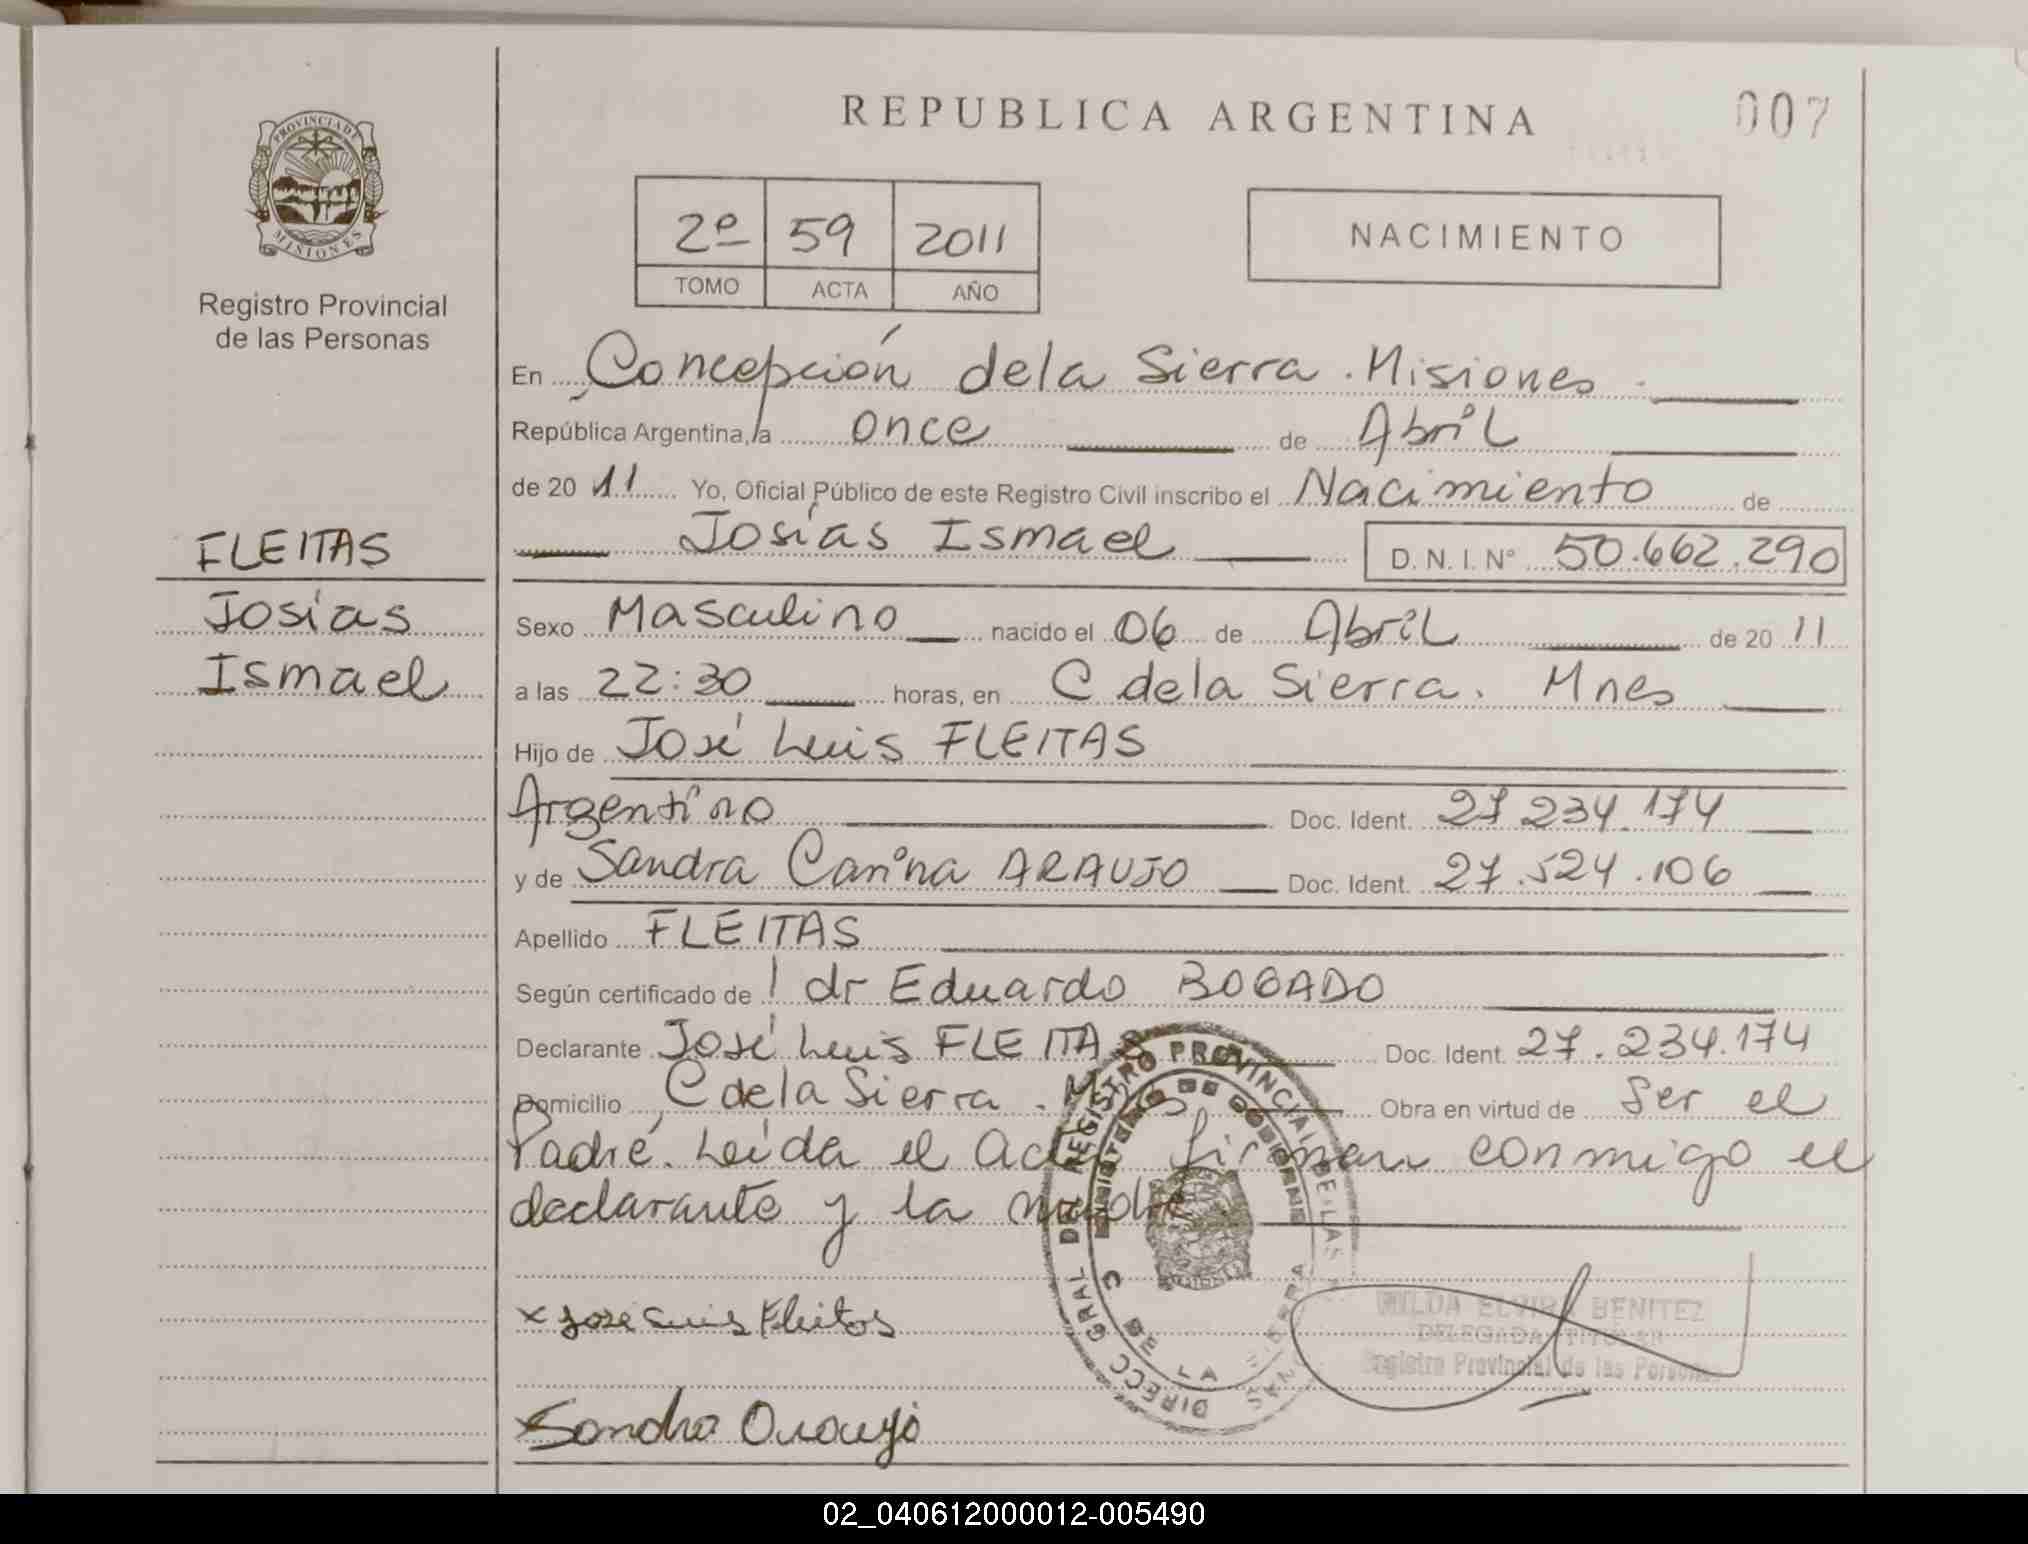 REPUBLICA ARGENTINA
007
PROVINCIA DE
MISIONES
Registro Provincial
de las Personas
2º 59 2011
TOMO ACTA AÑO
NACIMIENTO
En Concepción de la Sierra. Misiones.
República Argentina, a once de Abril
de 2011 Yo, Oficial Público de este Registro Civil inscribo el Nacimiento de
Josías Ismael D. N. I. Nº 50.662.290
FLEITAS
Josías
Ismael
Sexo Masculino nacido el 06 de Abril de 2011
a las 22:30 horas, en C de la Sierra. Mnes
Hijo de José Luis FLEITAS
Argentino Doc. Ident. 27.234.174
y de Sandra Carina ARAUJO Doc. Ident. 27.524.106
Apellido FLEITAS
Según certificado de dr Eduardo BOGADO
Declarante José Luis FLEITAS Doc. Ident. 27.234.174
Domicilio C de la Sierra. Mnes Obra en virtud de Ser el
Padre. Leída el Acta firman conmigo el
declarante y la madre
DIRECC GRAL DEL REGISTRO PROVINCIAL DE LAS
MINISTERIO DE GOBIERNO
C DE LA SIERRA
x José Luis Fleitas
BENITEZ
DELEGADA TITULAR
Registro Provincial de las Personas
x Sandra Araujo
02_040612000012-005490